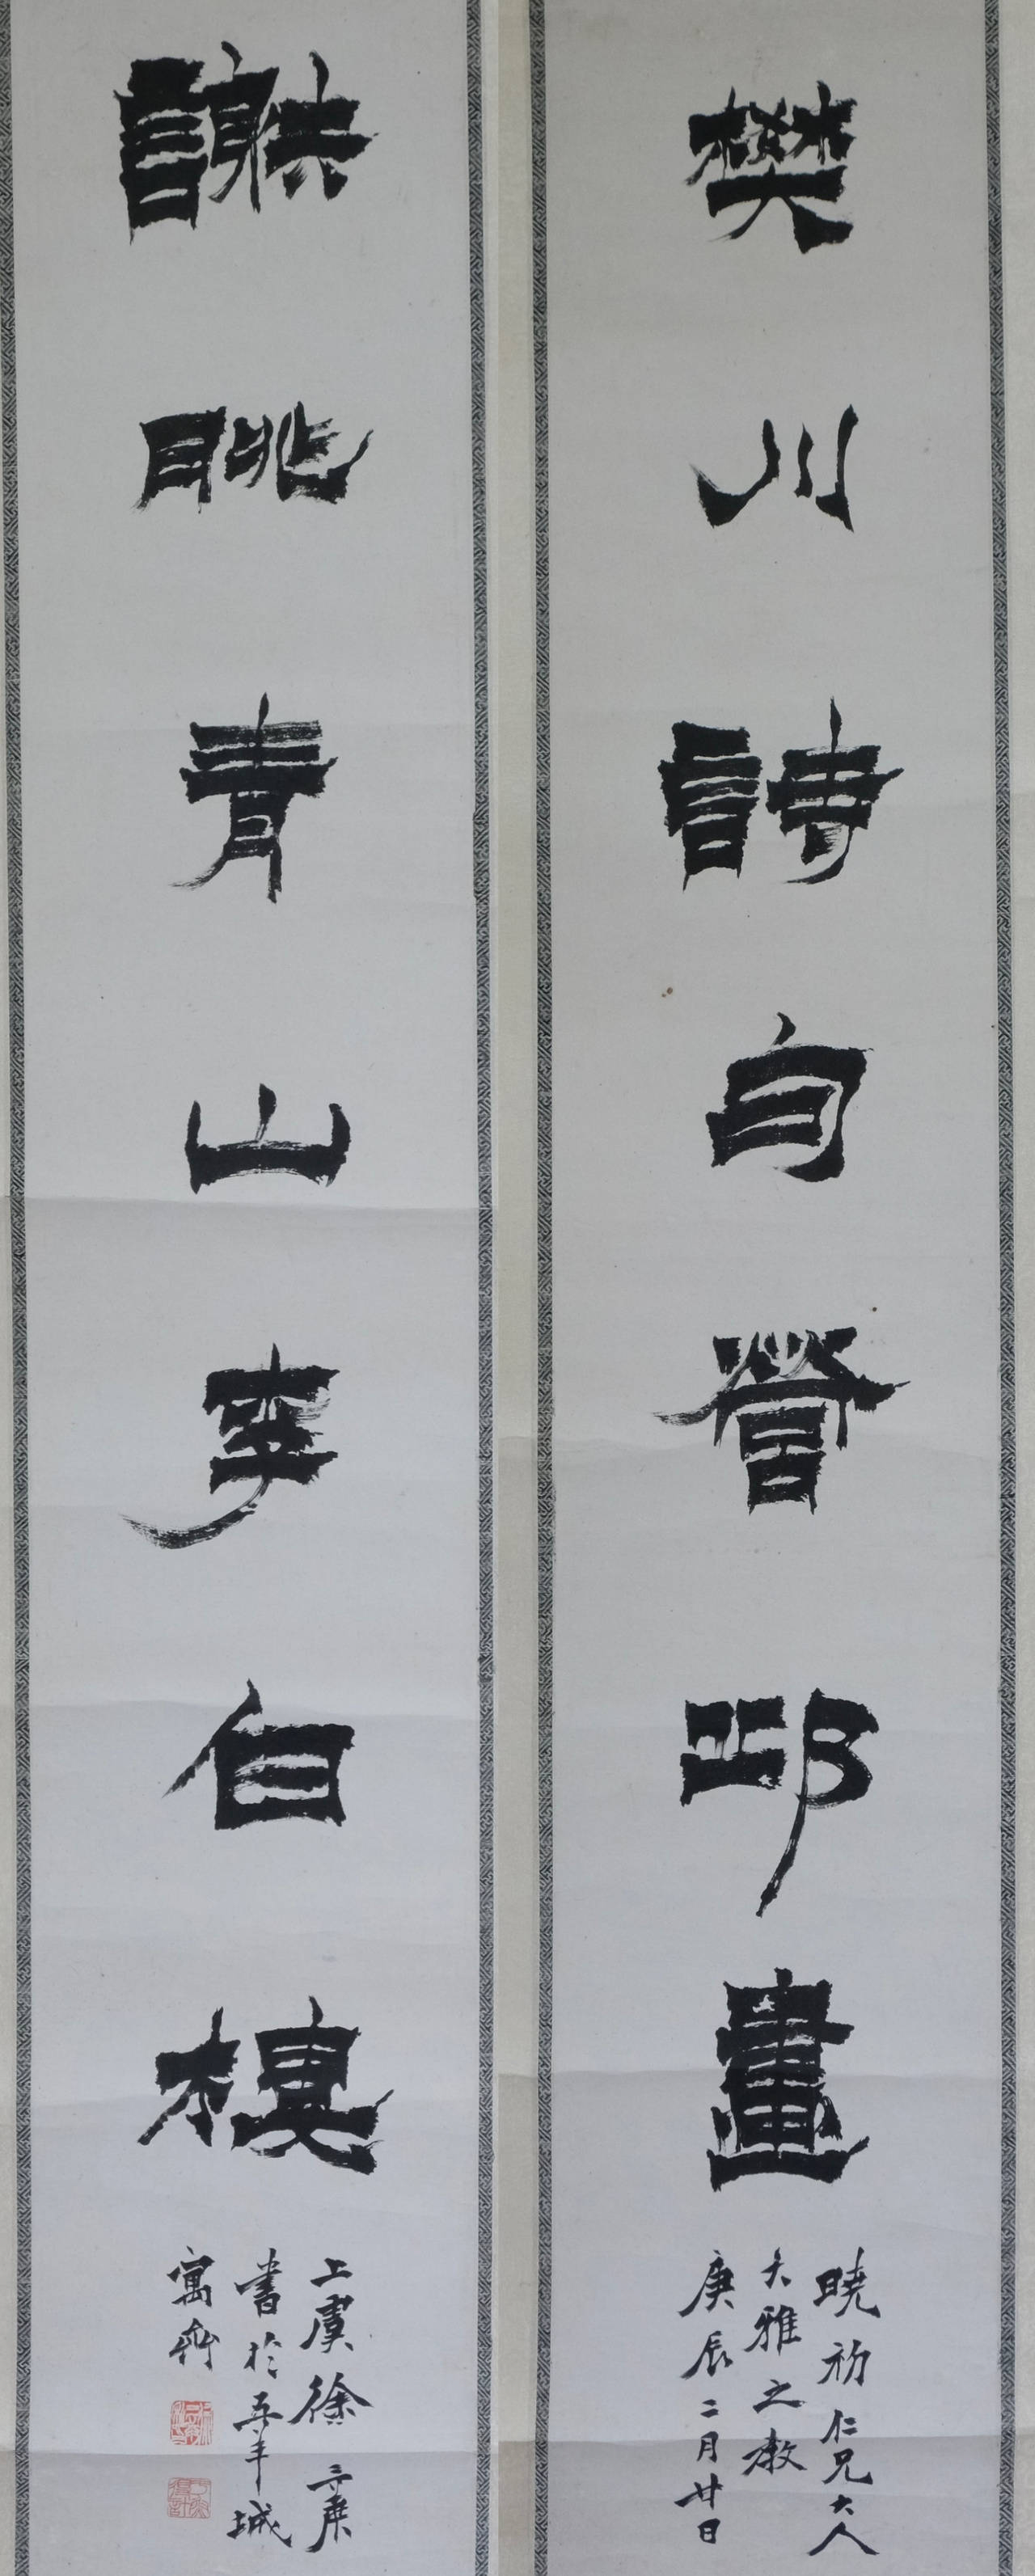 樊川詩句營邱畫
曉初仁兄大人
大雅之教
庚辰二月廿日
謝眺青山李白樓
上虞徐三庚
書於五羊城
寓齋